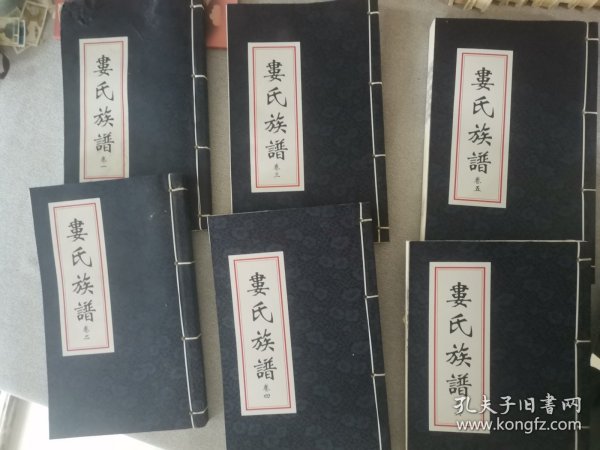 婁氏族譜
卷一
婁氏族譜
卷三
婁氏族譜
卷五
婁氏族譜
卷二
婁氏族譜
卷四
婁氏族譜
孔夫子旧书网
www.kongfz.com